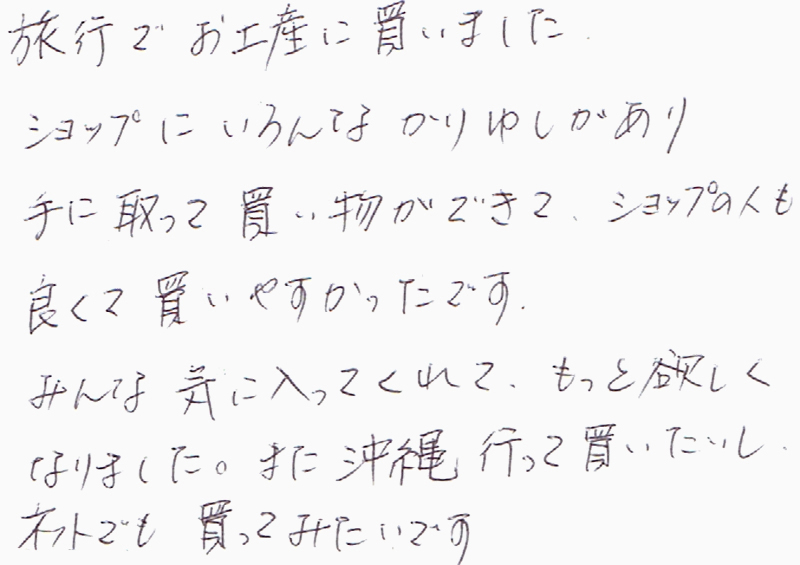 旅行でお土産に買いました.
ショップにいろんなかりゆしがあり
手に取って買い物ができて、ショップの人も
良くて買いやすかったです.
みんな気に入ってくれて、もっと欲しく
なりました。また沖縄行って買いたいし、
ネットでも買ってみたいです